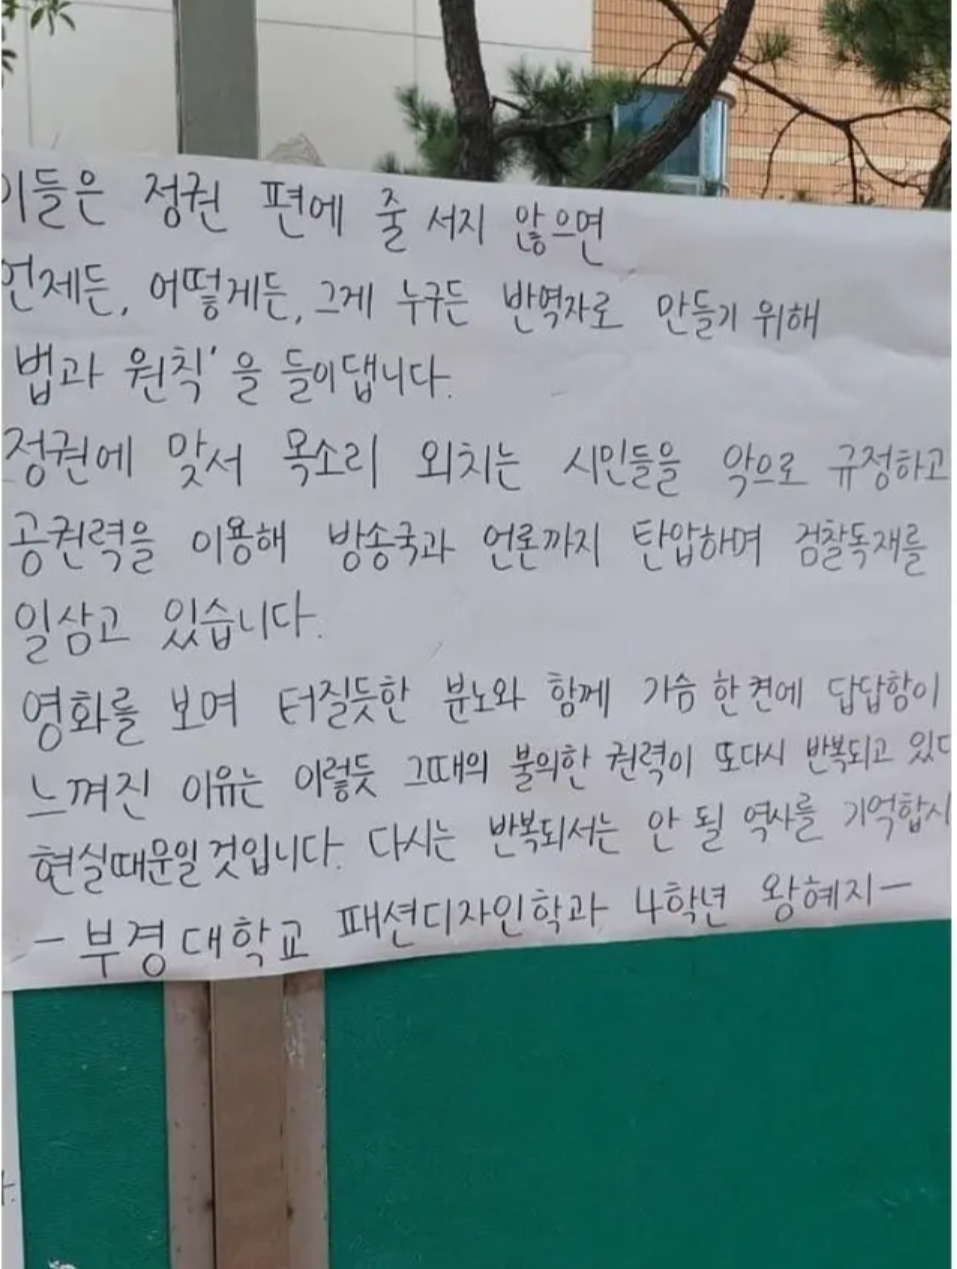 이들은 정권 편에 줄 서지 않으면
언제든, 어떻게든, 그게 누구든 반역자로 만들기 위해
법과 원칙'을 들이댑니다.
정권에 맞서 목소리 외치는 시민들을 악으로 규정하고
공권력을 이용해 방송국과 언론까지 탄압하며 검찰독재를
일삼고 있습니다.
영화를 보며 터질듯한 분노와 함께 가슴 한 켠에 답답함이
느껴진 이유는 이렇듯 그때의 불의한 권력이 또다시 반복되고 있다
현실때문일 것입니다. 다시는 반복되서는 안 될 역사를 기억합시
- 부경대학교 패션디자인학과 4학년 왕혜지 -